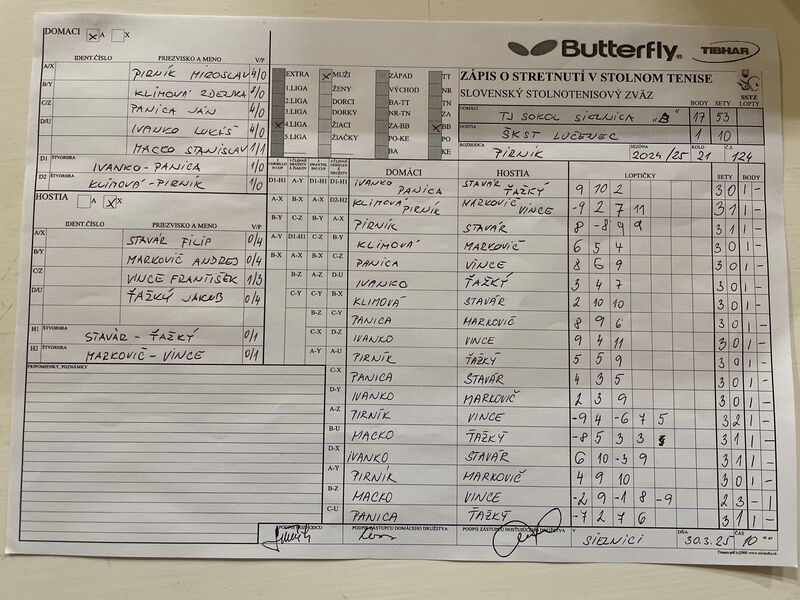 DOMACI x A X
Butterfly TIBHAR
IDENT.ČÍSLO PRIEZVISKO A MENO V/P
A/X PIRNÍK MIROSLAV 4/0
B/Y KLIMOVÁ ZDENKA 4/0
C/Z PANICA JÁN 4/0
D/U IVANKO LUKÁŠ 4/0
MACKO STANISLAV 1/1
D1 ŠTVORHRA IVANKO-PANICA 1/0
D2 ŠTVORHRA KLIMOVÁ-PIRNÍK 1/0
EXTRA x MUŽI ZÁPAD TT
1.LIGA ŽENY VÝCHOD NR
2.LIGA DORCI BA-TT TN
3.LIGA DORKY NR-TN ZA
x 4.LIGA ŽIACI ZA-BB x BB
5.LIGA ŽIAČKY PO-KE PO
BA KE
ZÁPIS O STRETNUTÍ V STOLNOM TENISE
SLOVENSKÝ STOLNOTENISOVÝ ZVÄZ
SSTZ
BODY SETY LOPTY
DOMÁCI TJ SOKOL SIELNICA "B" 17 53
HOSTIA ŠKST LUČENEC 1 10
ROZHODCA PIRNÍK SEZÓNA 2024/25 KOLO 21 Č. 124
HOSTIA A x X
IDENT.ČÍSLO PRIEZVISKO A MENO V/P
A/X STAVÁR FILIP 0/4
B/Y MARKOVIČ ANDREJ 0/4
C/Z VINCE FRANTIŠEK 1/3
D/U ŤAŽKÝ JAKUB 0/4
H1 ŠTVORHRA STAVÁR - ŤAŽKÝ 0/1
H2 ŠTVORHRA MARKOVIČ - VINCE 0/1
PRIPOMIENKY, POZNÁMKY
DOMÁCI HOSTIA LOPTIČKY SETY BODY
D1-H1 A-Y D1-H1 D1-H1 IVANKO PANICA STAVÁR ŤAŽKÝ 9 10 2 3 0 1 -
A-X B-X A-X D2-H2 KLIMOVÁ PIRNÍK MARKOVIČ VINCE -9 2 7 11 3 1 1 -
B-Y C-Z B-Y A-X PIRNÍK STAVÁR 8 -8 9 9 3 1 1 -
A-Y D1-H1 C-Z B-Y KLIMOVÁ MARKOVIČ 6 5 4 3 0 1 -
B-X A-X B-X C-Z PANICA VINCE 8 6 9 3 0 1 -
B-Z A-Z D-U IVANKO ŤAŽKÝ 3 4 7 3 0 1 -
C-Y C-Y B-X KLIMOVÁ STAVÁR 2 10 10 3 0 1 -
B-Z C-Y PANICA MARKOVIČ 8 9 6 3 0 1 -
C-X D-Z IVANKO VINCE 9 4 11 3 0 1 -
A-Y A-U PIRNÍK ŤAŽKÝ 5 5 9 3 0 1 -
C-X PANICA STAVÁR 4 3 5 3 0 1 -
D-Y IVANKO MARKOVIČ 2 3 9 3 0 1 -
A-Z PIRNÍK VINCE -9 4 -6 7 5 3 2 1 -
B-U MACKO ŤAŽKÝ -8 5 3 3 3 1 1 -
D-X IVANKO STAVÁR 6 10 -3 9 3 1 1 -
A-Y PIRNÍK MARKOVIČ 4 9 10 3 0 1 -
B-Z MACKO VINCE -2 9 -1 8 -9 2 3 - 1
C-U PANICA ŤAŽKÝ -7 2 7 6 3 1 1 -
PODPIS ROZHODCU PODPIS ZÁSTUPCU DOMÁCEHO DRUŽSTVA PODPIS ZÁSTUPCU HOSŤUJÚCEHO DRUŽSTVA V SIELNICI DŇA 30.3.25 ČAS 10 00